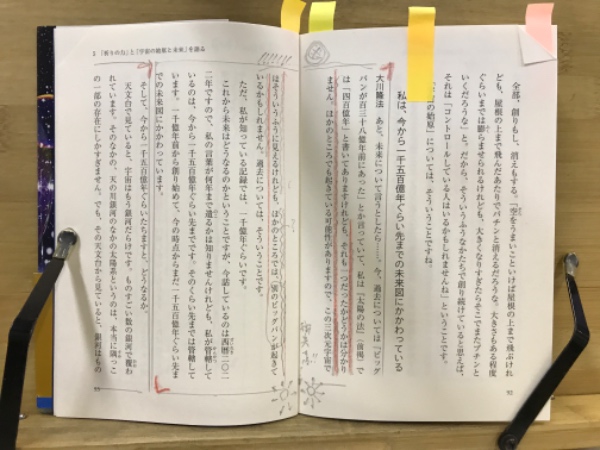 全部、創りもし、消えもする。「空をうまいこといけば屋根の上まで飛ぶけれ
ども、屋根の上まで飛んだあたりでパチンと消えるだろうな。大きさもある程度
ぐらいまでは膨らませられるけれども、大きくなりすぎたらそこでまたパチンと
いくだろうな」と。だから、そういうふうなかたちで創り続けていると思えば、
それは「コントロールしている人はいるかもしれませんね」ということです。
の始原」については、そういうことですね。
私は、今から一千五百億年ぐらい先までの未来図にかかわっている
大川隆法 あと、未来について言うとしたら……。今、過去については「ビッグ
バンが百三十八億年前にあった」とか言っていて、私は『太陽の法』(前掲)で
は「四百億年」と書いてありますけれども、それも一つだったかどうかは分かり
ません。ほかのところでも起きている可能性がありますので、この三次元宇宙で
92
1 「祈りの力」と「宇宙の始原と未来」を語る
はそういうふうに見えるけれども、ほかのところでは、別のビッグバンが起きて
いるかもしれません。過去については、そういうことです。
ただ、私が知っている記録では、一千億年ぐらいです。
これから未来はどうなるのかということですが、今話しているのは西暦二〇二
二年ですので、私の言葉が何年まで遺るかは知りませんけれども、私が管轄して
いるのは、今から一千五百億年ぐらい先までです。そのくらい先までは管轄して
います。一千億年前から創り始めて、今の時点からまだ一千五百億年ぐらい先ま
での未来図にかかわっています。
そして、今から一千五百億年ぐらいたちますと、どうなるか。
天文台で見ていると、宇宙はもう銀河だらけです。ものすごい数の銀河で覆わ
れています。そのなかの、天の川銀河のなかの太陽系というのは、本当に隅っこ
の一部の存在にしかすぎません。でも、その天文台から見ていると、銀河はもの
93